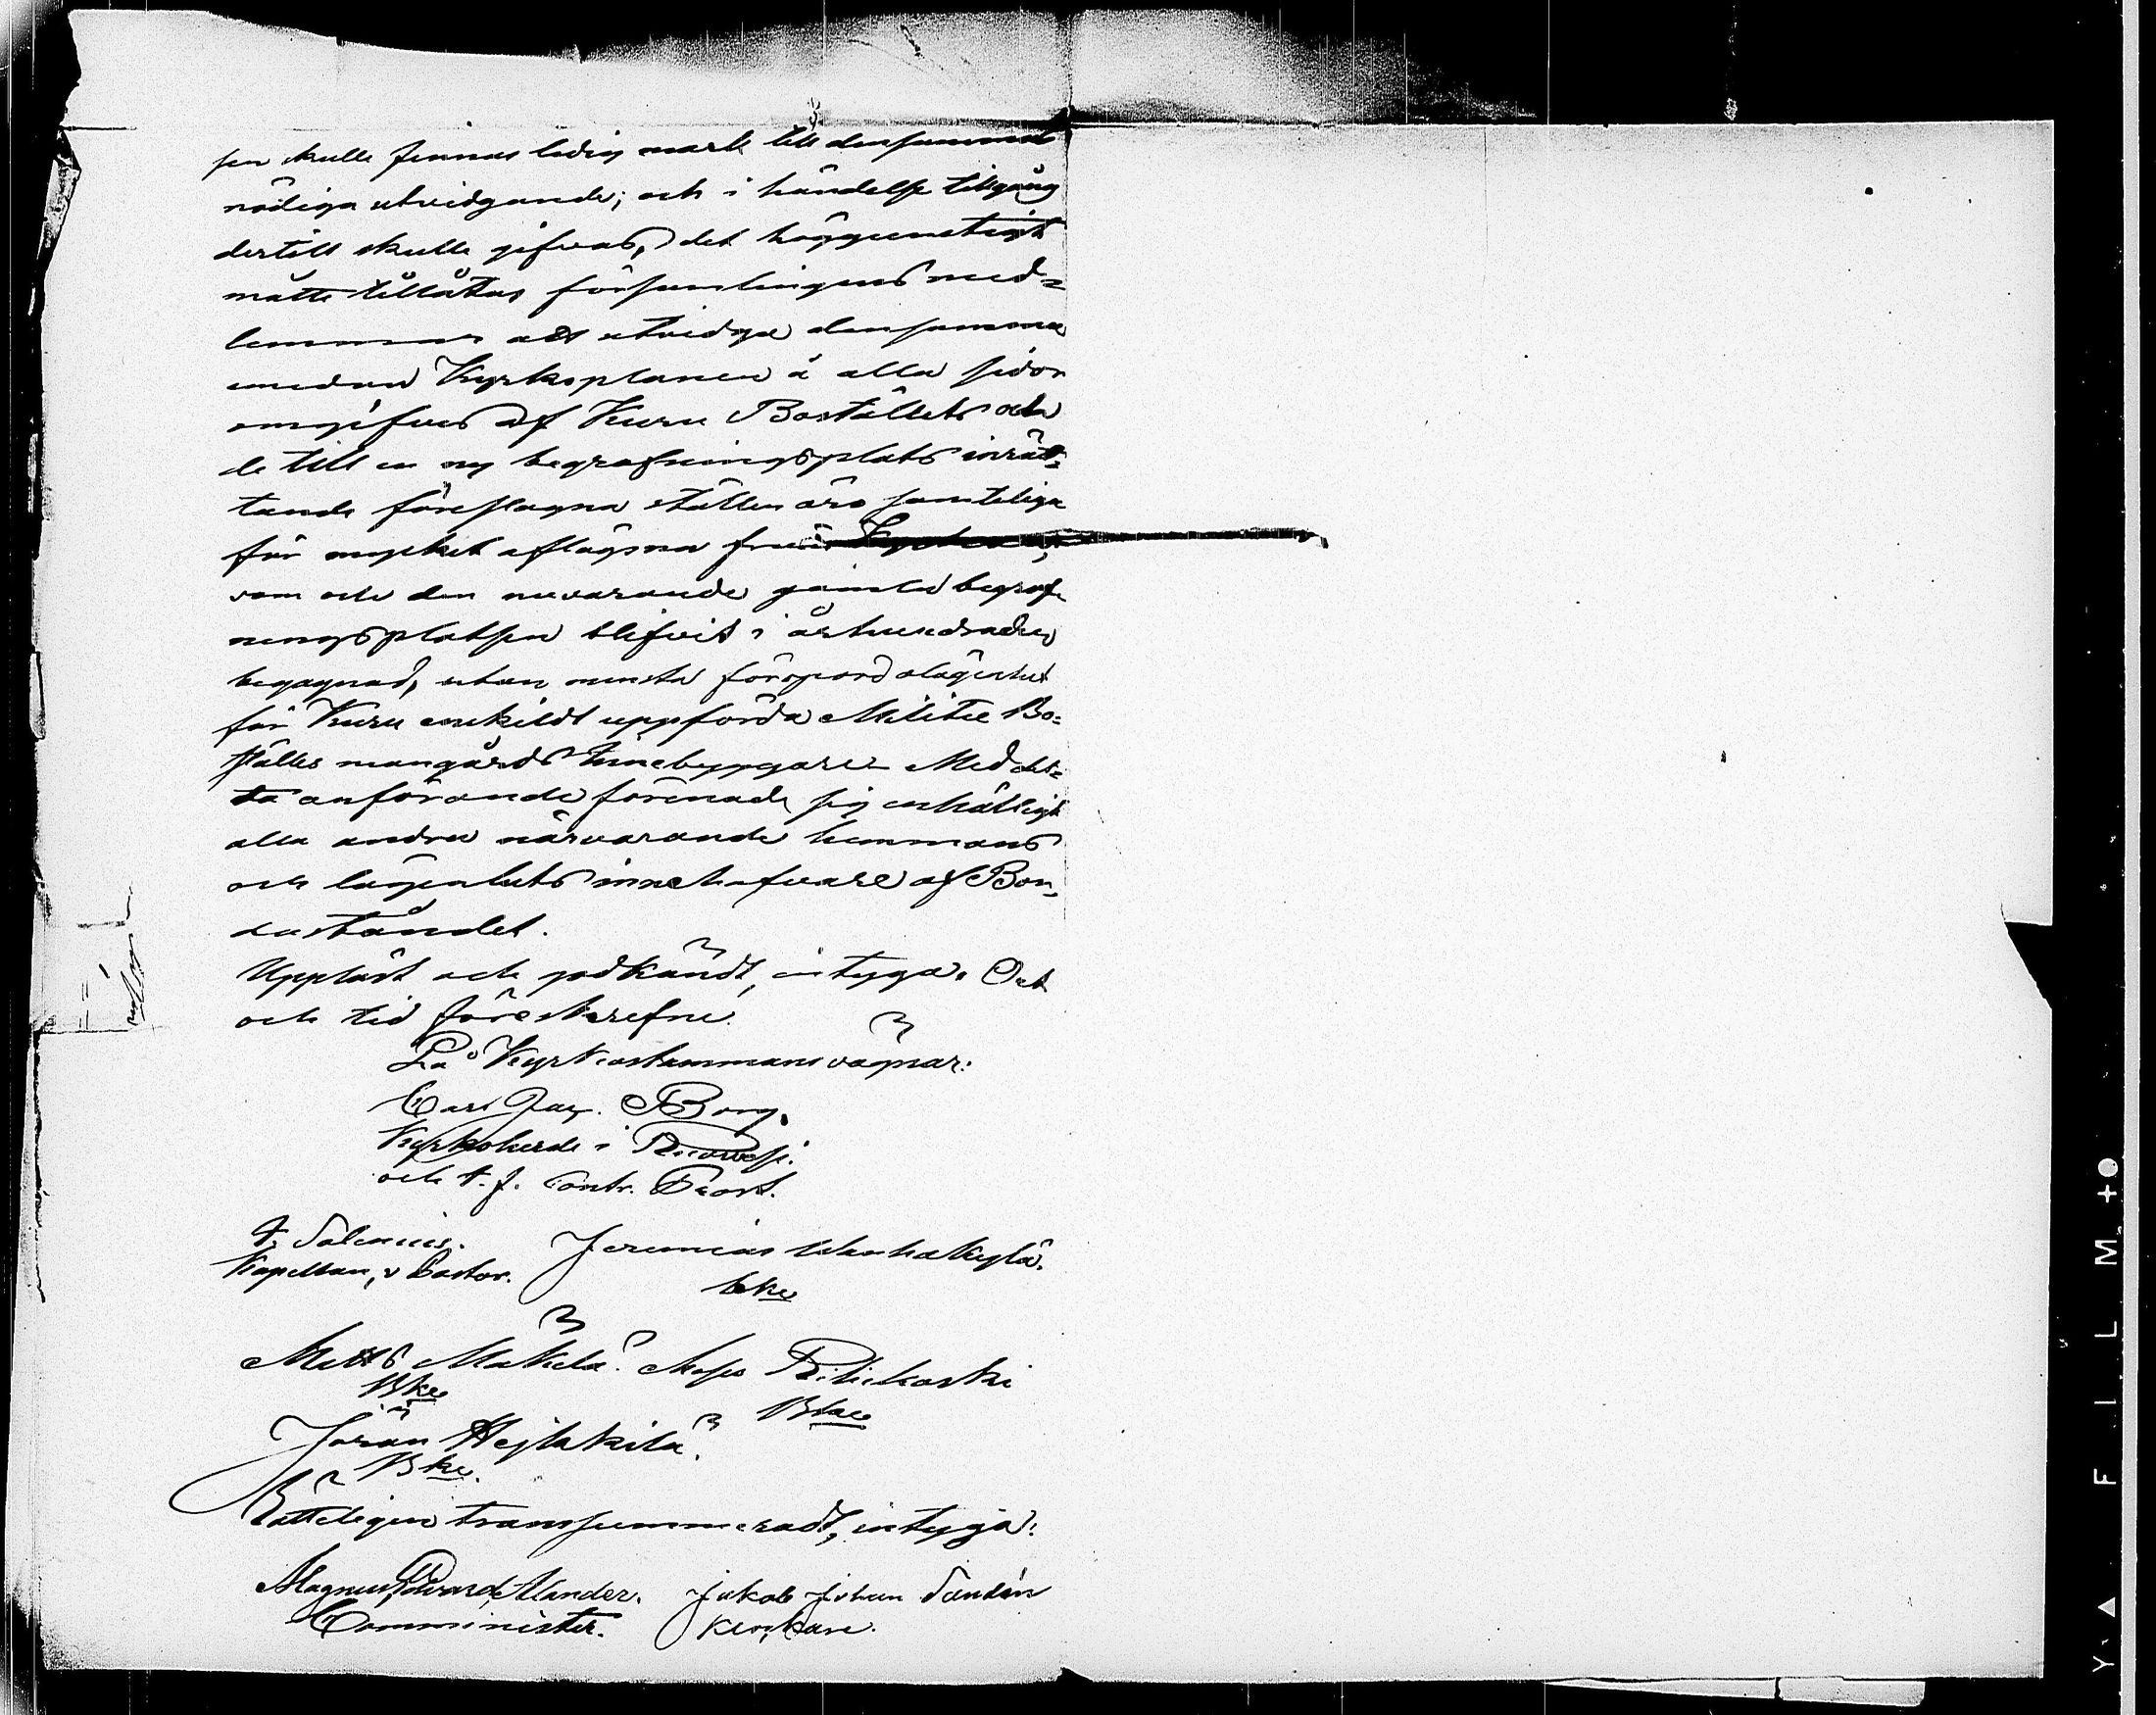 sen skulle finnas ledig mark till densammas
nödiga utvidgande; och i händelse tillgång
dertill skulle gifvas, det höggunstigt
måtte tillåtas församlingens med-
lemmar att utvidga densamma
emedan Kyrkoplanen å alla sidor
omgifves af Kuru Boställets och
de till en ny begrafningsplats inrät-
tande föreslagna ställen äro samteliga
för mycket aflägsna från Kyrkan,
som och den nuvarande gamla begraf-
ningsplatsen blifvit i århundraden
begagnad, utan minsta förspord olägenhet
för Kuru enskildt uppförda Militie Bo-
ställes mangårds Innebyggare. Med det-
ta anförande förenade sig enhälligt
alla andra närvarande hemmans
och lägenhets innehafvare af Bon-
deståndet.
Uppläst och godkändt, intyga. Ort
och tid föreskrefne.
På Kyrkostämmans vägnar:
Carl Gust. Borg.
Kyrkoherde i Ruovesi.
och t. f. Contr. Prost.
F. Salenius. Jeremias Wanhakylä.
Kapellan, v. Pastor. bke
Matts Mäkelä. Moses Riihikoski
Bke Bke
Jöran Hejlakilä.
Bke.
Rätteligen transsummeradt, intyga:
Magnus Edvard Alander. Jakob Johan Sandén
Comminister. Klockare.